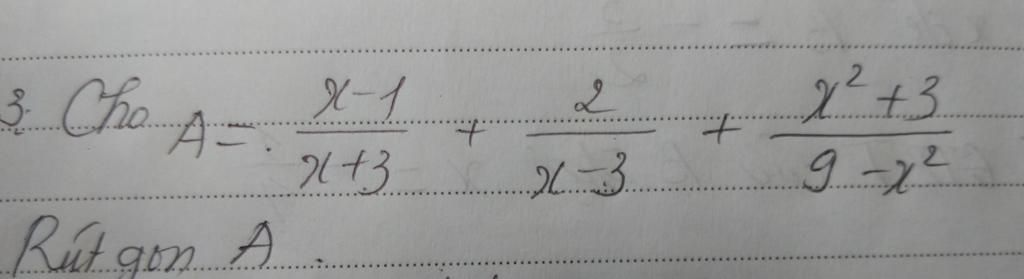 3. Cho A = \frac{x-1}{x+3} + \frac{2}{x-3} + \frac{x^2+3}{9-x^2}
Rút gọn A.